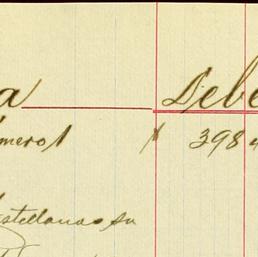 a Debe
mero 1 $ 398 4
stellanos su